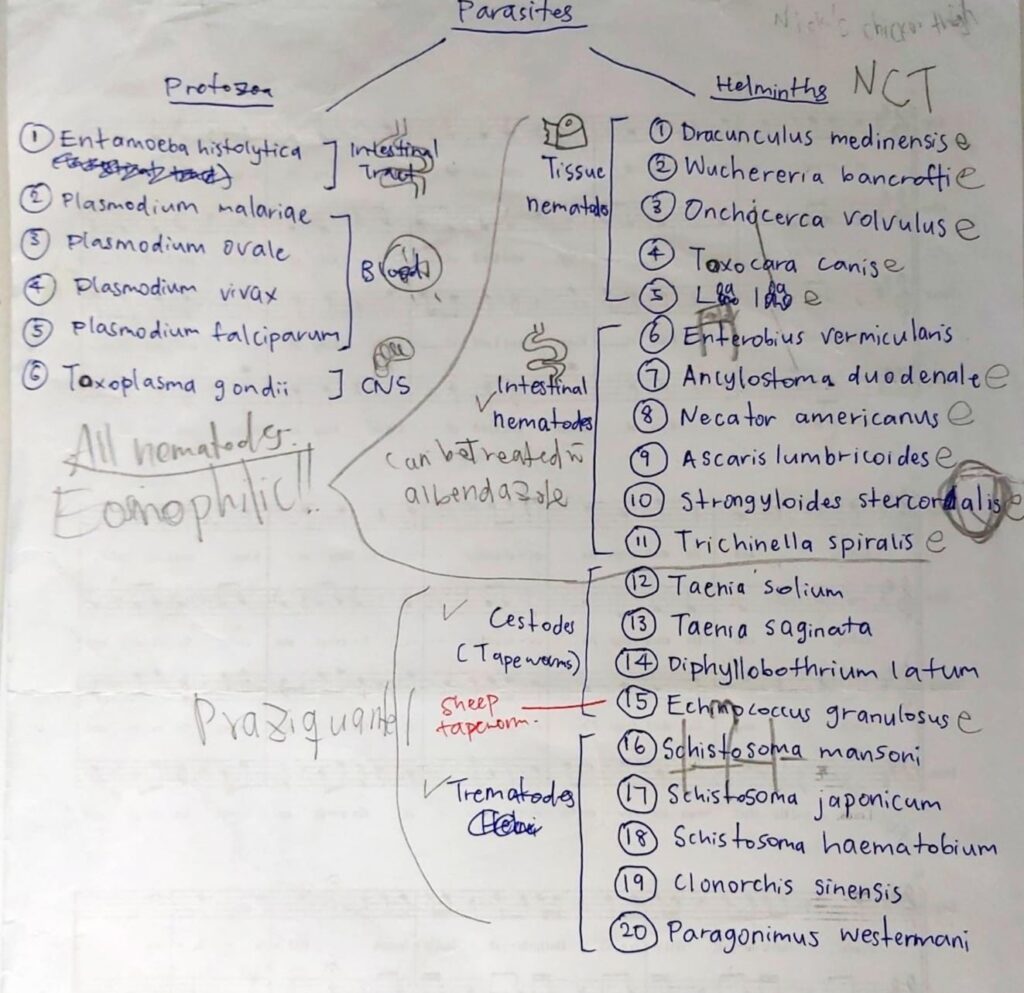 Parasites
Protozoa
① Entamoeba histolytica
Intestinal
Tract
② Plasmodium malariae
③ Plasmodium ovale
④ Plasmodium vivax
⑤ Plasmodium falciparum
Blood
⑥ Toxoplasma gondii
CNS
All nematodes
Eosinophilic!!
Helminths
NCT
Tissue
nematodes
① Dracunculus medinensis e
② Wuchereria bancrofti e
③ Onchocerca volvulus e
④ Toxocara canis e
⑤ Loa loa e
Intestinal
nematodes
can be treated
albendazole
⑥ Enterobius vermicularis
⑦ Ancylostoma duodenale e
⑧ Necator americanus e
⑨ Ascaris lumbricoides e
⑩ Strongyloides stercoralis e
⑪ Trichinella spiralis e
Cestodes
(Tapeworms)
⑫ Taenia solium
⑬ Taenia saginata
⑭ Diphyllobothrium latum
sheep
tapeworm.
⑮ Echinococcus granulosus e
Praziquantel
Trematodes
⑯ Schistosoma mansoni
⑰ Schistosoma japonicum
⑱ Schistosoma haematobium
⑲ Clonorchis sinensis
⑳ Paragonimus westermani